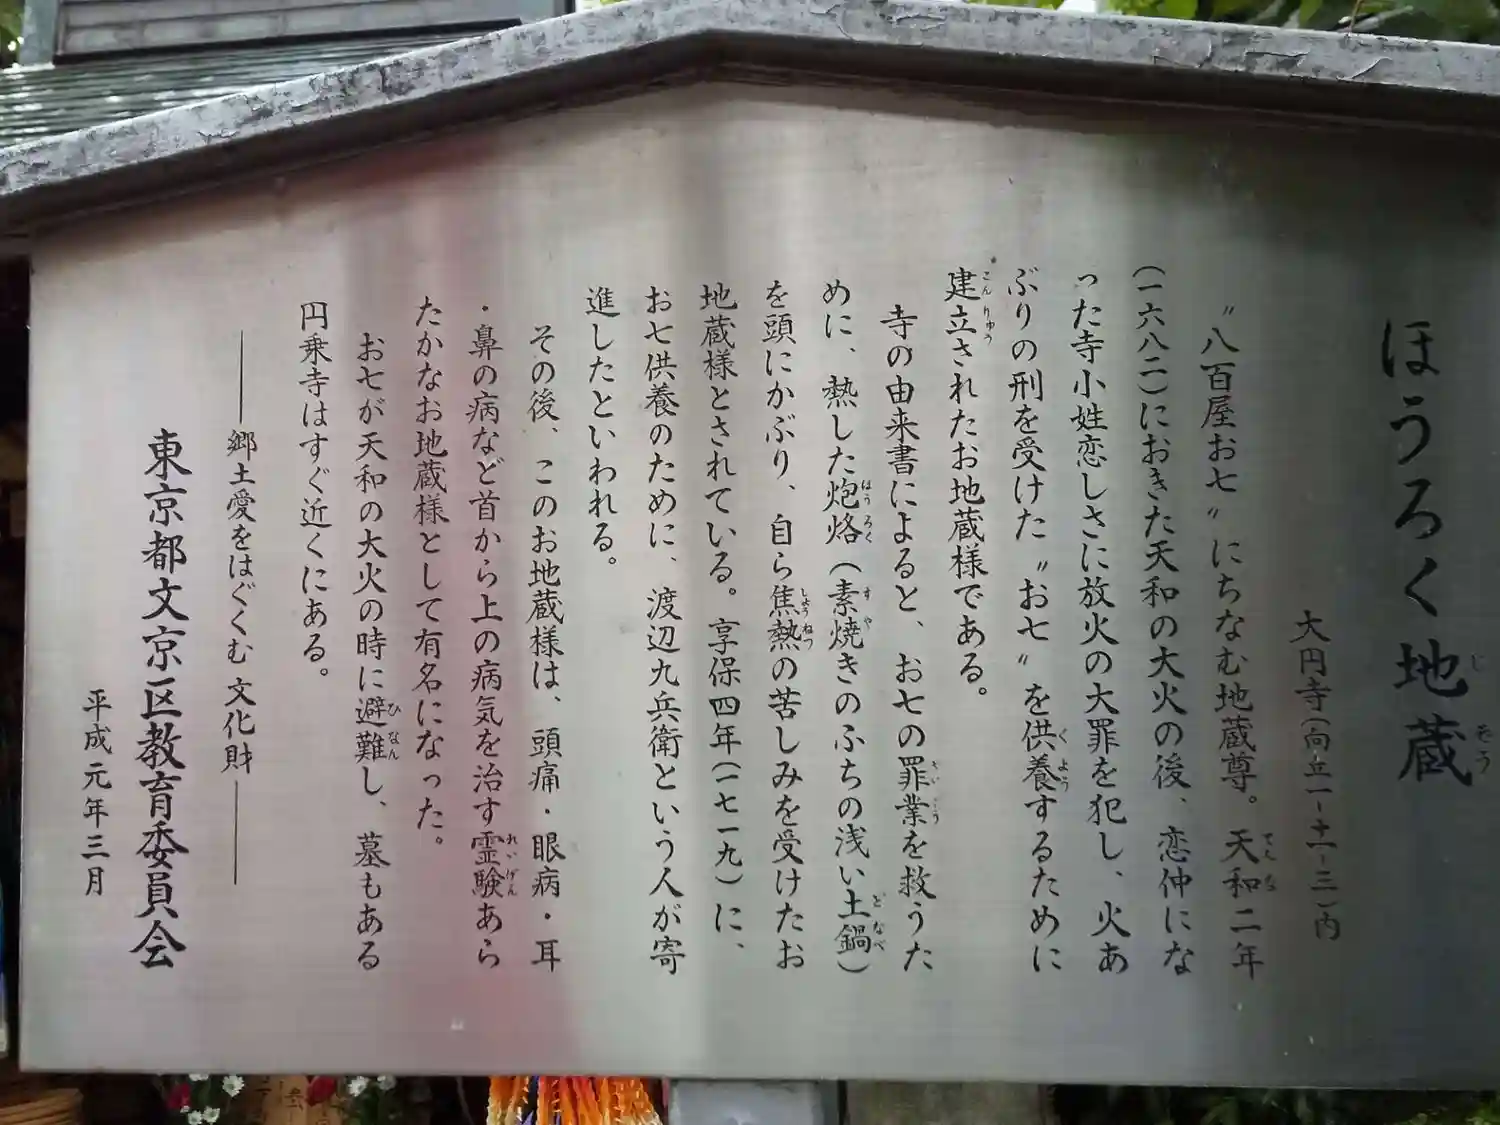 ほうろく地蔵
大円寺(向丘一-十一-三)内
〝八百屋お七〟にちなむ地蔵尊。天和二年
(一六八二)におきた天和の大火の後、恋仲にな
った寺小姓恋しさに放火の大罪を犯し、火あ
ぶりの刑を受けた〝お七〟を供養するために
建立されたお地蔵様である。
寺の由来書によると、お七の罪業を救うた
めに、熱した炮烙(素焼きのふちの浅い土鍋)
を頭にかぶり、自ら焦熱の苦しみを受けたお
地蔵様とされている。享保四年(一七一九)に、
お七供養のために、渡辺九兵衛という人が寄
進したといわれる。
その後、このお地蔵様は、頭痛・眼病・耳
・鼻の病など首から上の病気を治す霊験あら
たかなお地蔵様として有名になった。
お七が天和の大火の時に避難し、墓もある
円乗寺はすぐ近くにある。
――郷土愛をはぐくむ文化財――
東京都文京区教育委員会
平成元年三月